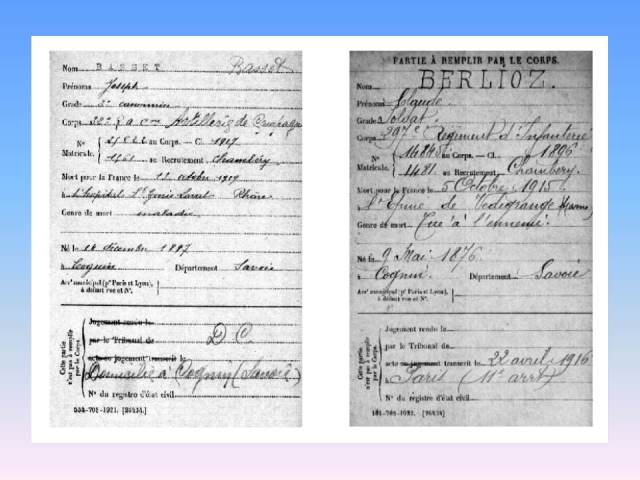 Nom BASSET Basset
Prénoms Joseph
Grade 2e canonnier
Corps Artillerie de Campagne
N° au Corps. — Cl. 1917
Matricule. au Recrutement Chambéry
Mort pour la France le octobre
à l'hôpital St Genis Laval Rhône
Genre de mort maladie
Né le décembre 1897
à Cognin Département Savoie
Arr' municipal (p' Paris et Lyon), à défaut rue et N°.
Cette partie n'est pas à remplir par le Corps.
Jugement rendu le
par le Tribunal de D C
acte ou jugement transcrit le
Domicilié à Cognin (Savoie)
N° du registre d'état civil
PARTIE À REMPLIR PAR LE CORPS.
Nom BERLIOZ.
Prénoms Claude.
Grade Soldat.
Corps 297e Régiment d'Infanterie
N° au Corps. — Cl. 1896
Matricule. 1481 au Recrutement Chambéry
Mort pour la France le 5 Octobre 1915
à l'Epine de Védegrange (Marne)
Genre de mort Tué à l'ennemi.
Né le 9 Mai 1876
à Cognin. Département Savoie
Arr' municipal (p' Paris et Lyon), à défaut rue et N°.
Cette partie n'est pas à remplir par le Corps.
Jugement rendu le
par le Tribunal de
acte ou jugement transcrit le 22 avril 1916
à Paris (11e arrt)
N° du registre d'état civil